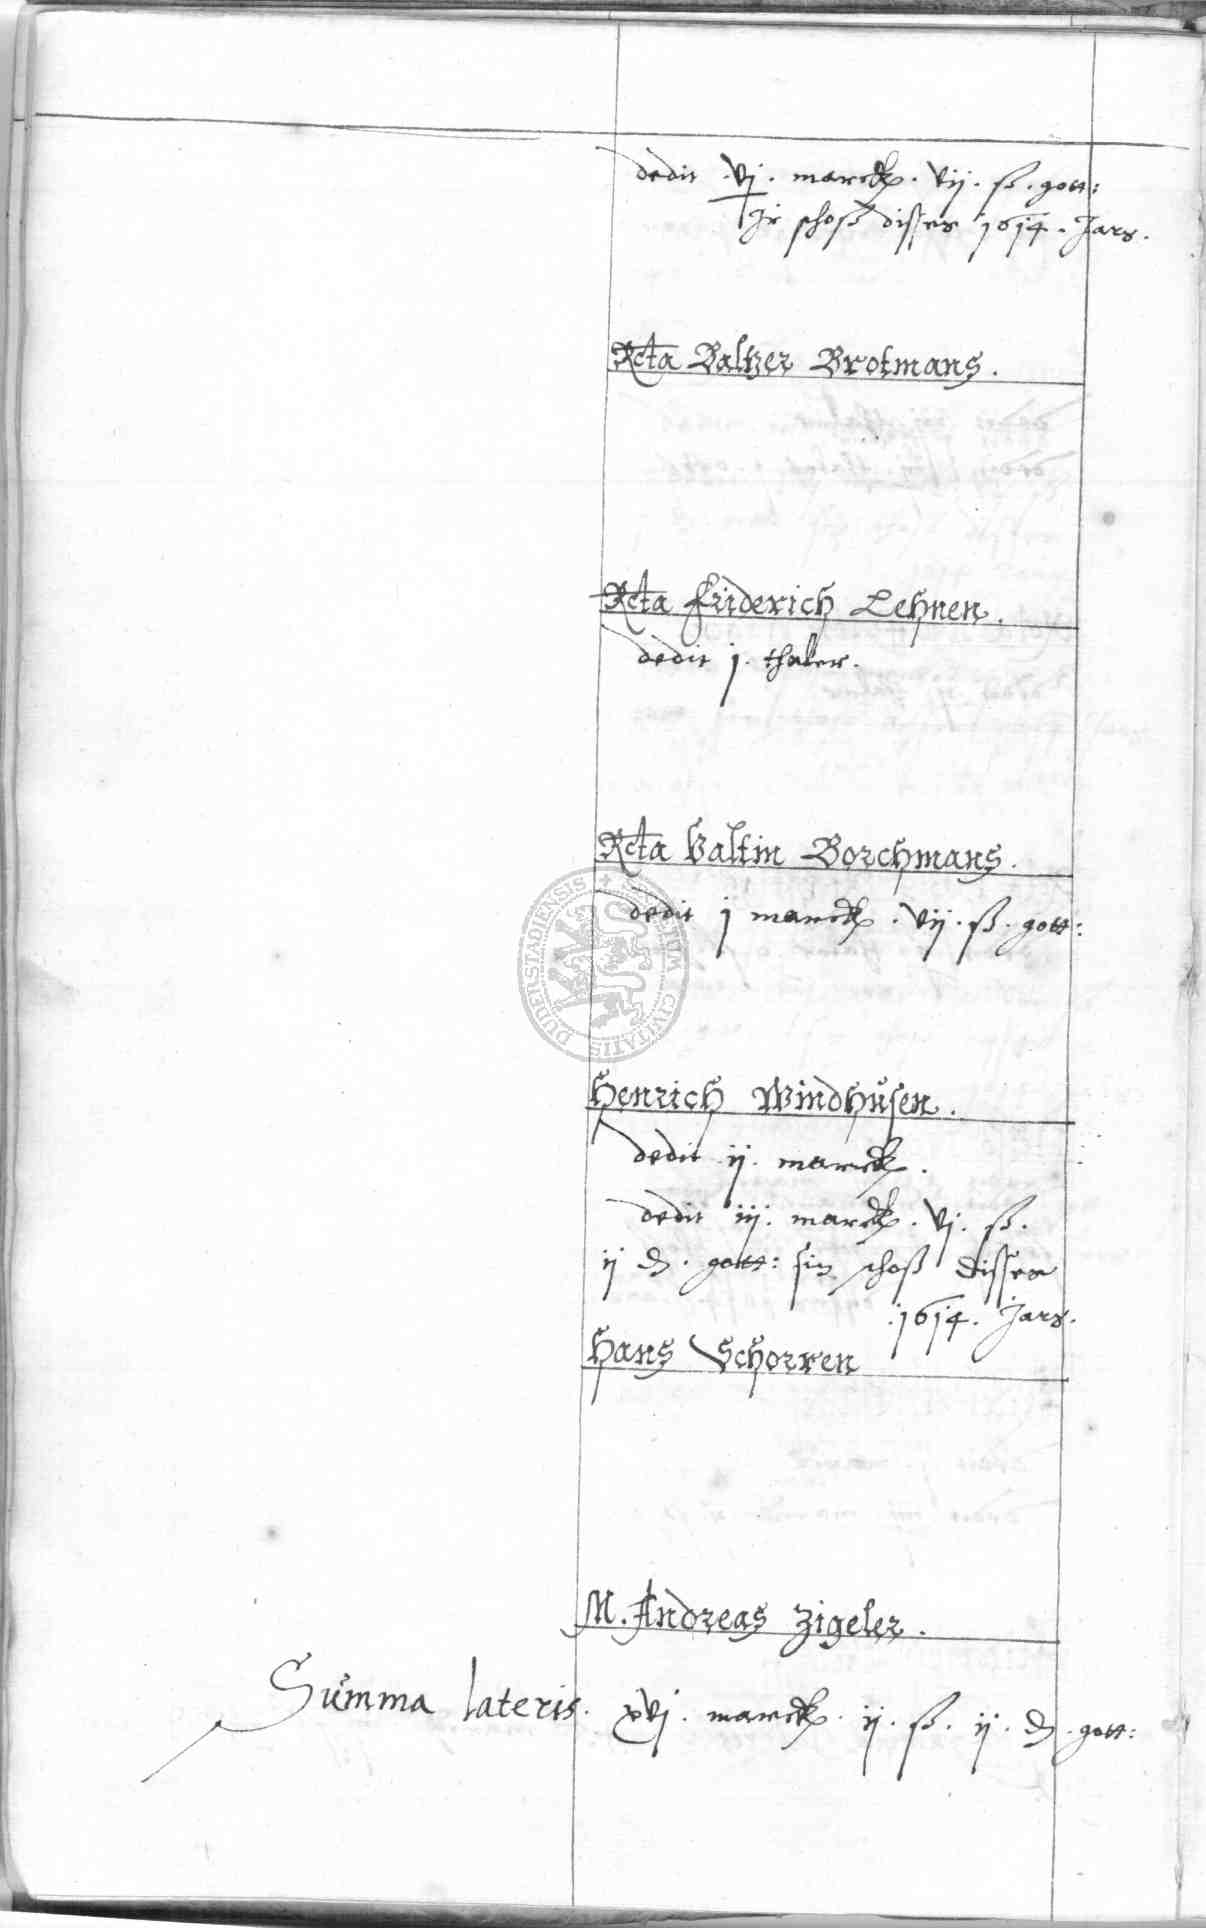 dedit . vj . marck . vij . ß . gott:
Jr schoß disses 1614 . Jars .
Rcta Baltzer Brotmans .
Rcta Friderich Lehnen .
dedit j . thaler .
Rcta Valtin Borchmans .
dedit j marck . vij . ß . gott:
Henrich Windhusen .
dedit ij . marck .
dedit iij . marck . vj . ß .
ij ₰ . gott: sin schoß disses
. 1614 . Jars .
Hans Schorren
M. Andreas Zigeler .
Summa lateris . xvj . marck . ij . ß . ij . ₰ . gott:
SECRETUM CIVITATIS DUDERSTADIENSIS